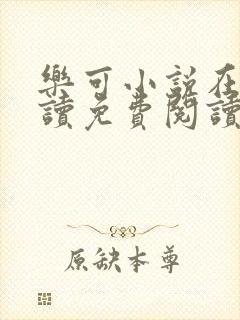 樂可小説在
讀免費閱讀
原缺本尊